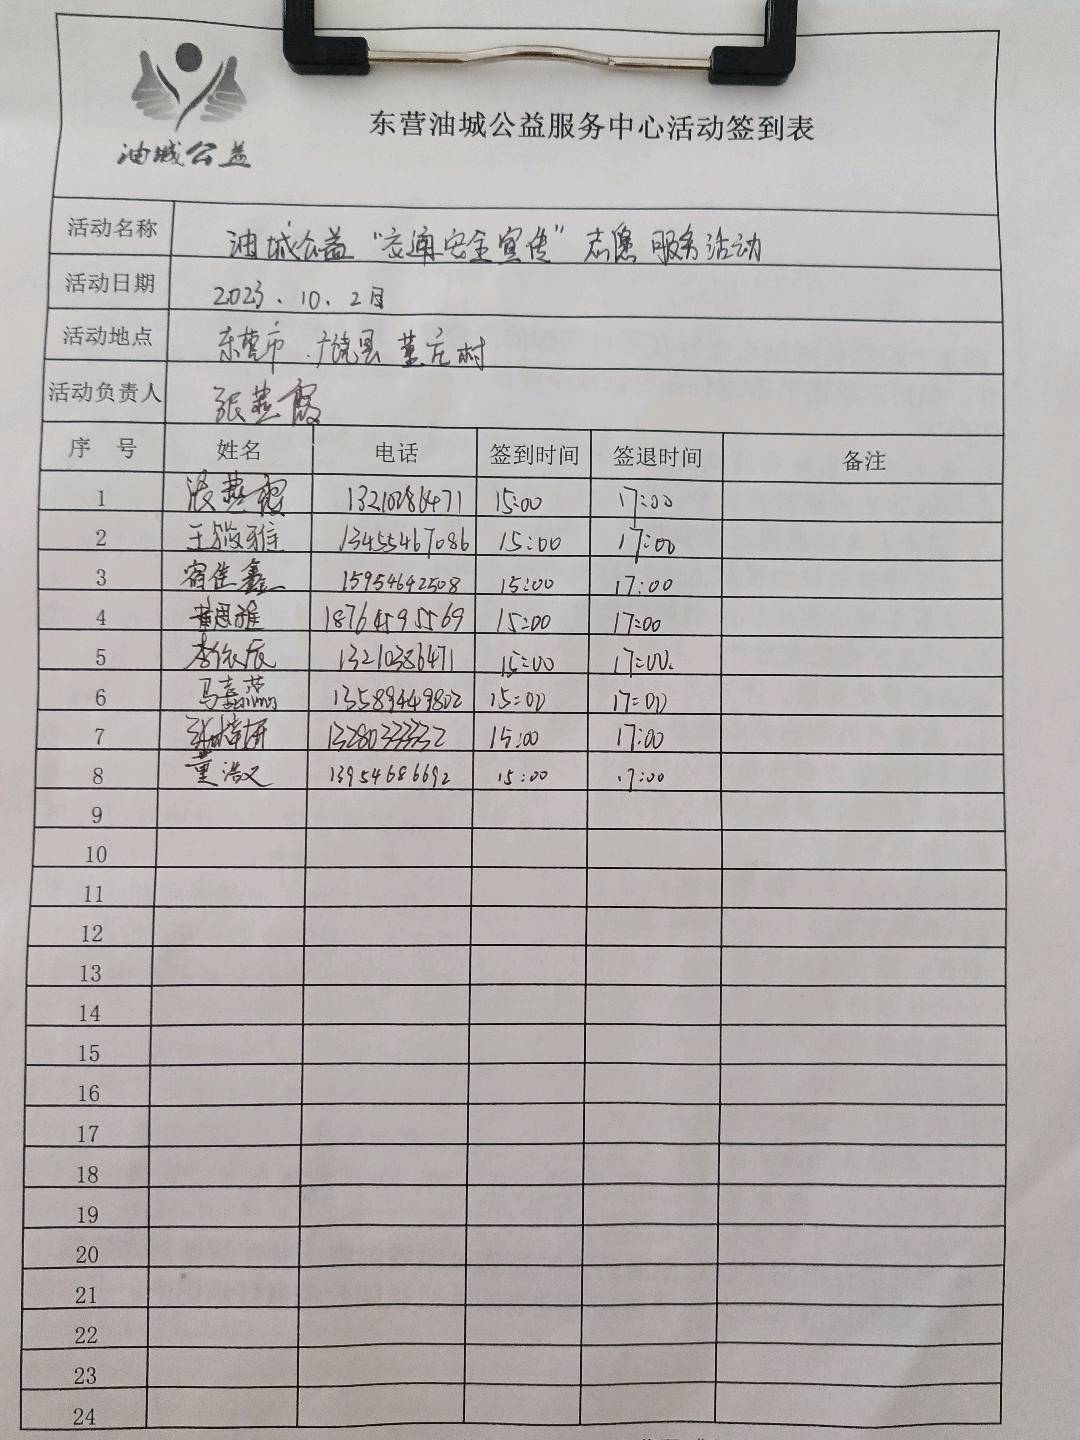 油城公益
东营油城公益服务中心活动签到表
活动名称 油城公益“交通安全宣传”志愿服务活动
活动日期 2023.10.2日
活动地点 东营市 广饶县 董庄村
活动负责人 张燕霞
序 号 姓名 电话 签到时间 签退时间 备注
1 张燕霞 13210386471 15:00 17:00
2 王筱雅 13455467086 15:00 17:00
3 宿佳鑫 15954642508 15:00 17:00
4 黄思雅 18764595569 15:00 17:00
5 李依辰 13210386471 15:00 17:00
6 马嘉 13589449802 15:00 17:00
7 张 15:00 17:00
8 董浩文 13954686692 15:00 17:00
9
10
11
12
13
14
15
16
17
18
19
20
21
22
23
24